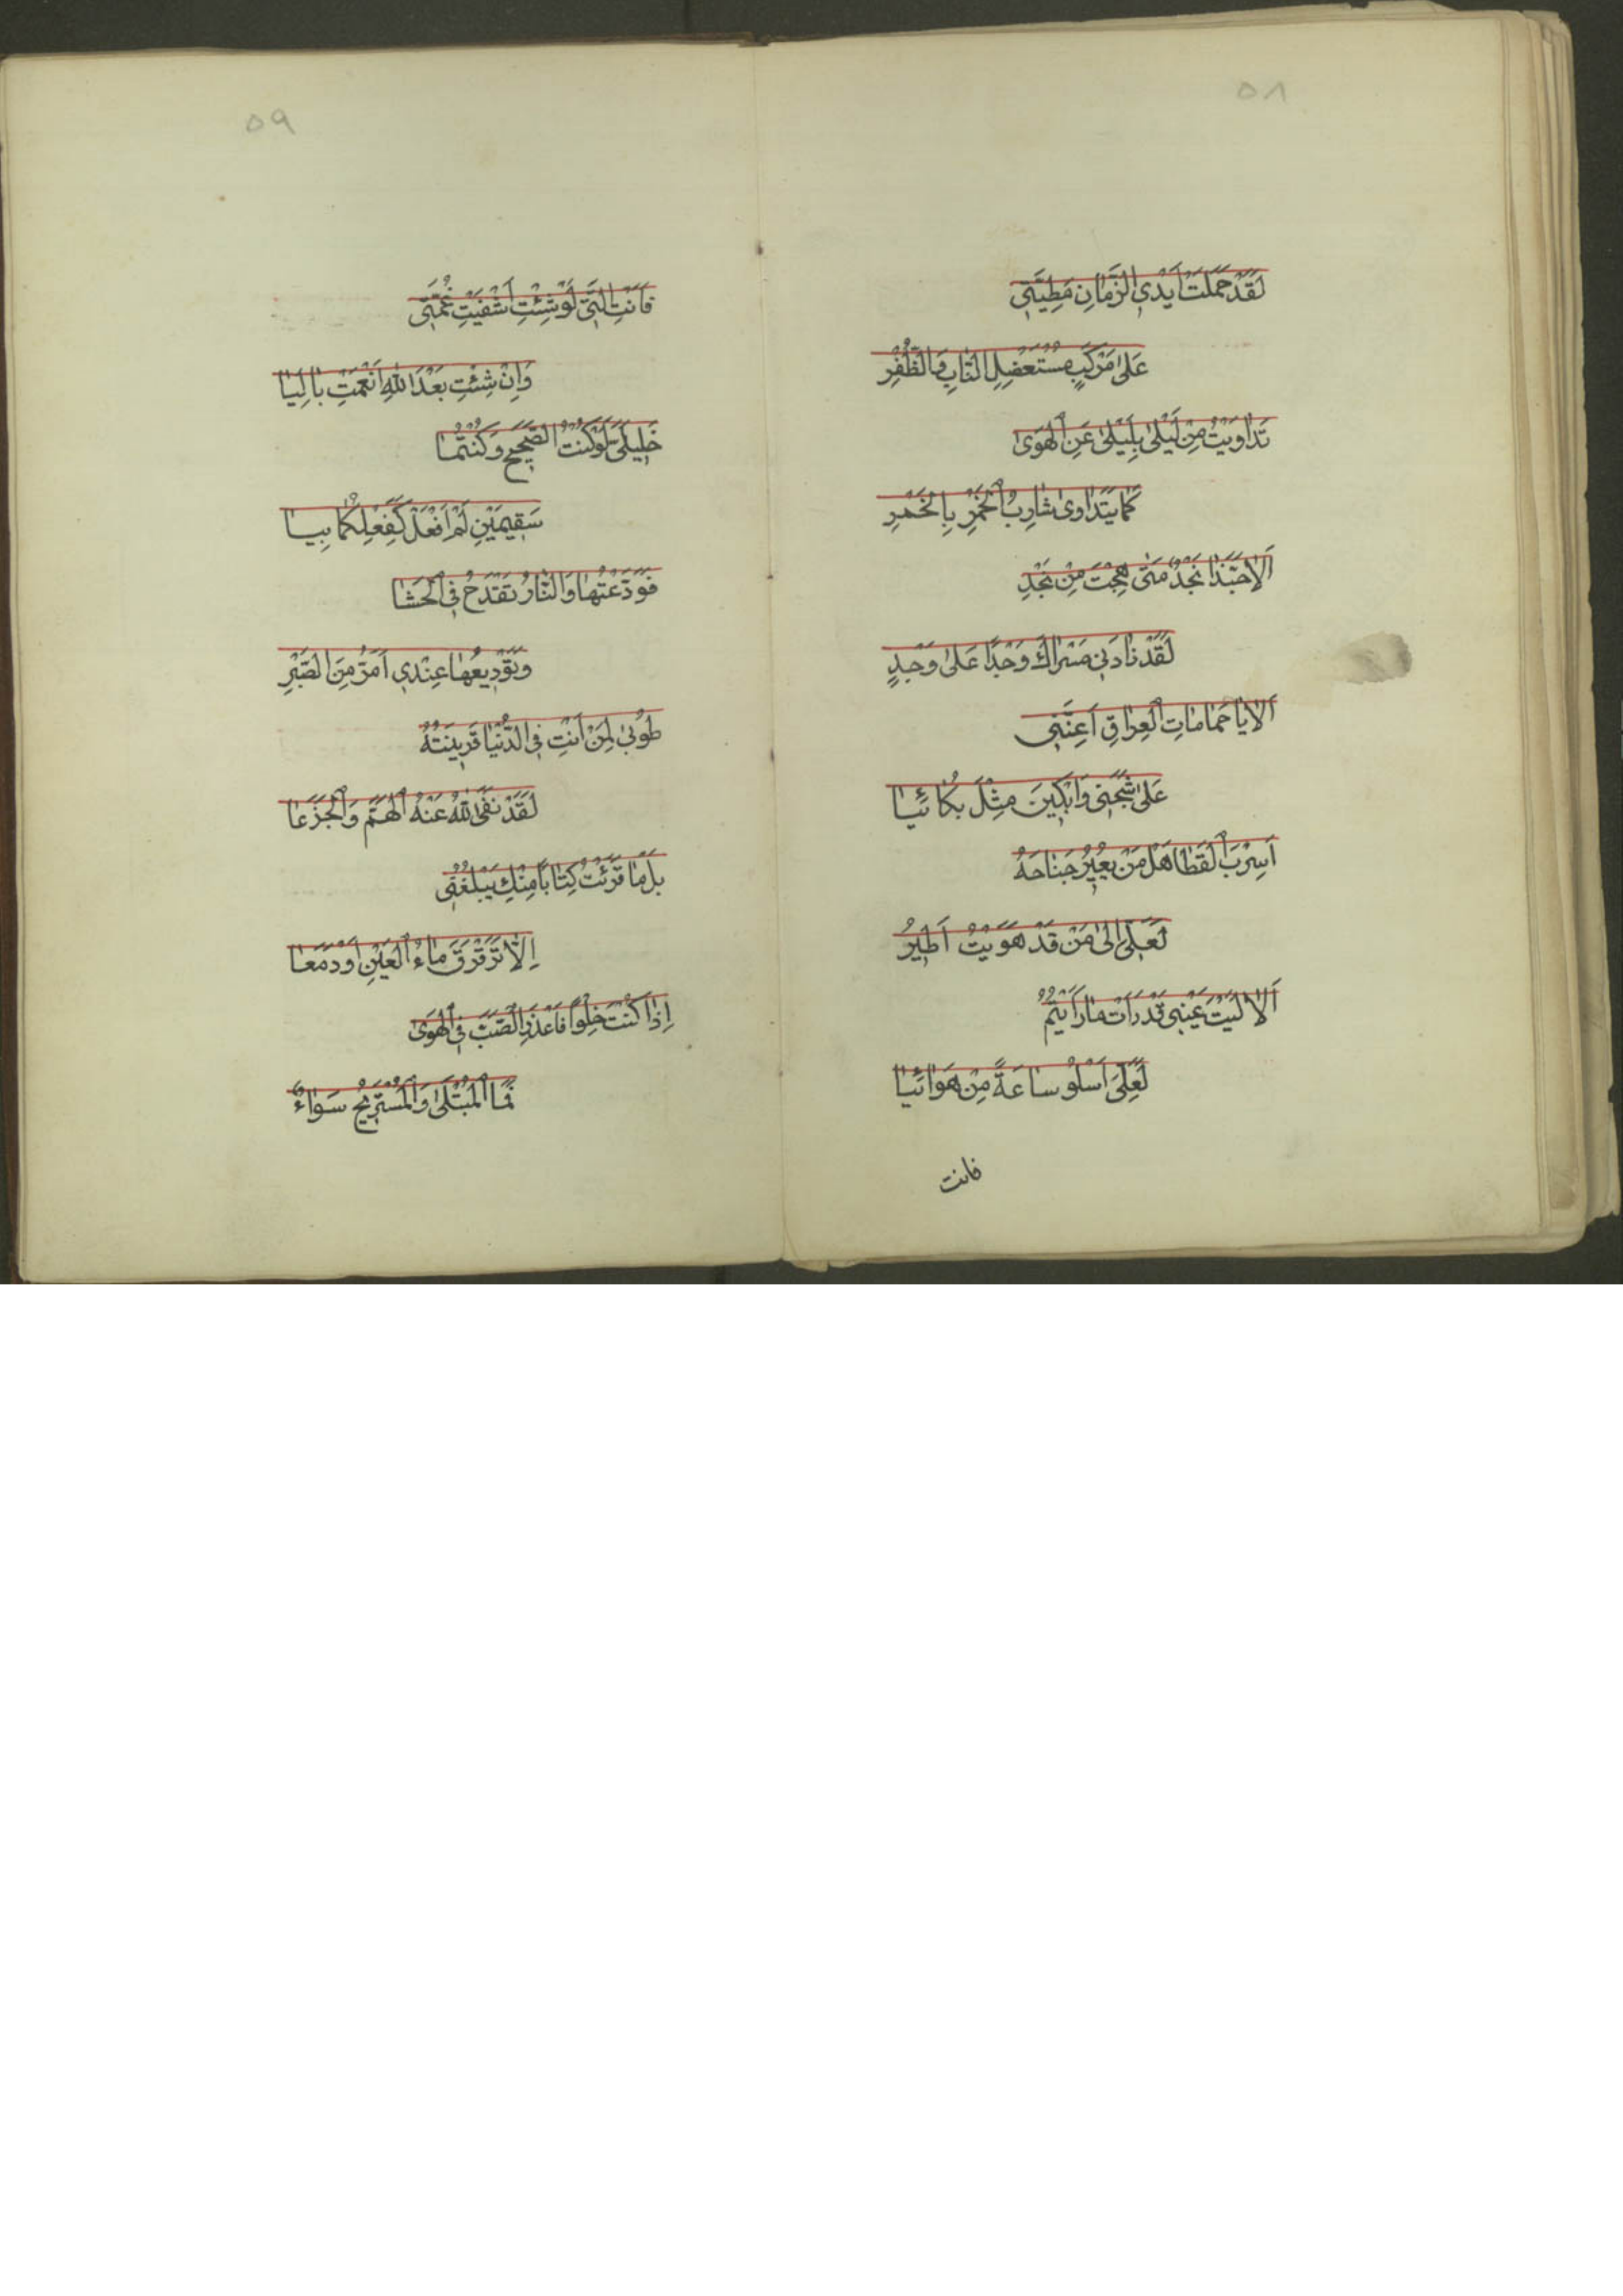 ٥٨
لَقَدْ حَمَلَتْ اَيْدِي الزَّمَانِ مَطِيَّتِي
عَلٰى مَرْكَبٍ مُسْتَعْضِلِ النَّابِ وَالظُّفْرِ
تَدَاوَيْتُ مِنْ لَيْلٰى بِلَيْلٰى عَنِ الْهَوٰى
كَمَا يَتَدَاوٰى شَارِبُ الْخَمْرِ بِالْخَمْرِ
اَلَا حَبَّذَا نَجْدٌ مَتٰى هِجْتَ مِنْ نَجْدِ
لَقَدْ زَادَنِي مَسْرَاكَ وَجْدًا عَلٰى وَجْدٍ
اَلَا يَا حَمَامَاتِ الْعِرَاقِ اَعِنَّنِي
عَلٰى شَجَنِي وَابْكِينَ مِثْلَ بُكَائِيَا
اَسِرْبَ الْقَطَا هَلْ مَنْ يُعِيرُ جَنَاحَهُ
لَعَلِّي اِلٰى مَنْ قَدْ هَوَيْتُ اَطِيرُ
اَلَا لَيْتَ عَيْنِي قَدْ رَاَتْ مَا رَاَيْتُمُ
لَعَلِّيَ اَسْلُو سَاعَةً مِنْ هَوَائِيَا
فانت
٥٩
فَاَنْتِ الَّتِي لَوْ شِئْتِ اَشْفَيْتِ غُمَّتِي
وَاِنْ شِئْتِ بَعْدَ اللّٰهِ اَنْعَمْتِ بَالِيَا
خَلِيلَيَّ لَوْ كُنْتُ الصَّحِيحَ وَكُنْتُمَا
سَقِيمَيْنِ لَمْ اَفْعَلْ كَفِعْلِكُمَا بِيَا
فَوَدَّعْتُهَا وَالنَّارُ تَقْدَحُ فِي الْحَشَا
وَتَوْدِيعُهَا عِنْدِي اَمَرُّ مِنَ الصَّبْرِ
طُوبٰى لِمَنْ اَنْتِ فِي الدُّنْيَا قَرِينَتُهُ
لَقَدْ نَفَى اللّٰهُ عَنْهُ الْهَمَّ وَالْجَزَعَا
بَلْ مَا قَرَئْتُ كِتَابًا مِنْكِ يَبْلُغُنِي
اِلَّا تَرَقْرَقَ مَاءُ الْعَيْنِ اَوْ دَمَعَا
اِذَا كُنْتَ خِلْوًا فَاعْذُرِ الصَّبَّ فِي الْهَوٰى
فَمَا الْمُبْتَلٰى وَالْمُسْتَرِيحُ سَوَاءٌ